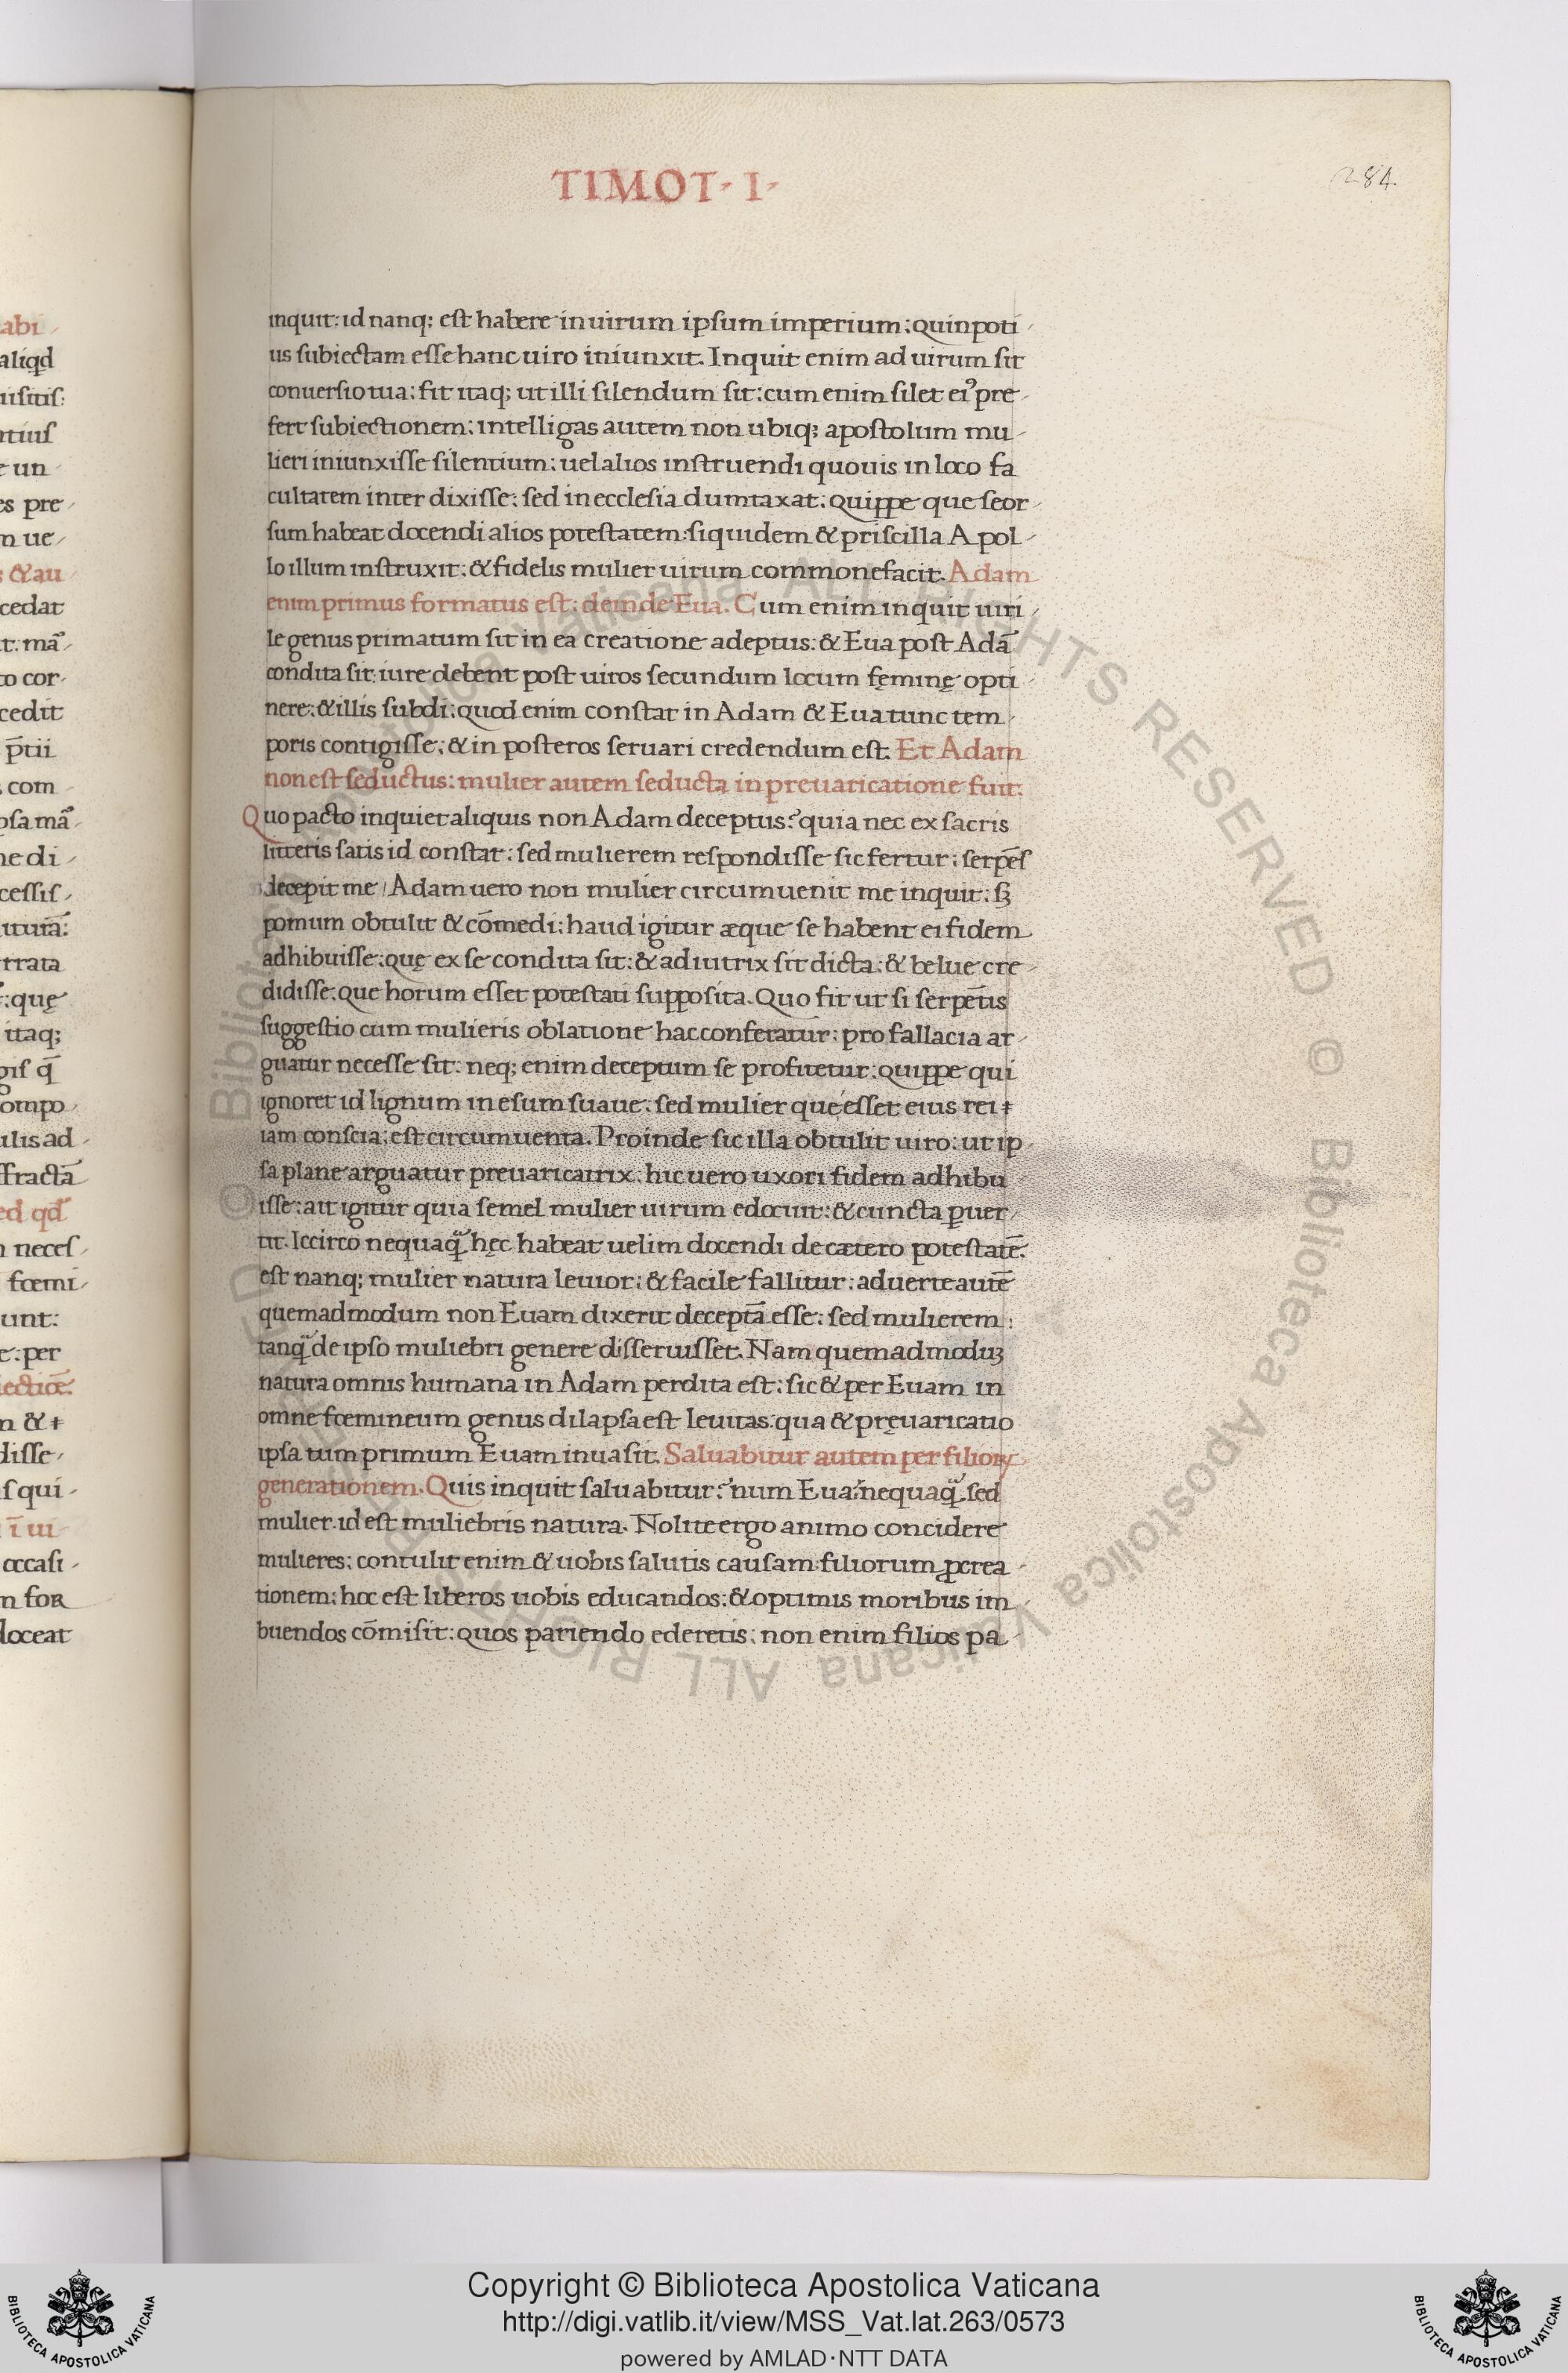 TIMOT· I·
284.
inquit: id nanq; est habere in uirum ipsum imperium: quin poti-
us subiectam esse hanc uiro iniunxit. Inquit enim ad uirum sit
conuersio tua: fit itaq; ut illi silendum sit: cum enim silet ei9 pre-
fert subiectionem: intelligas autem non ubiq; apostolum mu-
lieri iniunxisse silentium: uel alios instruendi quouis in loco fa
cultatem inter dixisse: sed in ecclesia dumtaxat: quippe que seor-
sum habeat docendi alios potestatem: siquidem & priscilla Apol-
lo illum instruxit: & fidelis mulier uirum commonefacit. Adam
enim primus formatus est: deinde Eua. Cum enim inquit uiri-
le genus primatum sit in ea creatione adeptus: & Eua post Adā
condita sit: iure debent post uiros secundum locum feminę opti-
nere: & illis subdi: quod enim constat in Adam & Eua tunc tem-
poris contigisse: & in posteros seruari credendum est. Et Adam
non est seductus: mulier autem seducta in preuaricatione fuit.
Quo pacto inquiet aliquis non Adam deceptus? quia nec ex sacris
litteris satis id constat: sed mulierem respondisse sic fertur: serpēs
decepit me / Adam uero non mulier circumuenit me inquit: sꝫ
pomum obtulit & cōmedi: haud igitur æque se habent ei fidem
adhibuisse: quę ex se condita sit: & adiutrix sit dicta: & belue cre-
didisse: que horum esset potestati supposita. Quo fit ut si serpētis
suggestio cum mulieris oblatione hac conferatur: pro fallacia ar-
guatur necesse sit: neq; enim deceptum se profitetur: quippe qui
ignoret id lignum in esum suaue: sed mulier que esset eius rei
iam conscia: est circumuenta. Proinde sic illa obtulit uiro: ut ip-
sa plane arguatur preuaricatrix: hic uero uxori fidem adhibu
isse: ait igitur quia semel mulier uirum edocuit: & cuncta ꝑuer-
tit. Iccirco nequaq̄ hęc habeat uelim docendi de cætero potestatē.
est nanq; mulier natura leuior: & facile fallitur: aduerte autē
quemadmodum non Euam dixerit deceptā esse: sed mulierem:
tanq̄ de ipso muliebri genere disseruisset. Nam quemadmoduꝫ
natura omnis humana in Adam perdita est: sic & per Euam in
omne fœmineum genus dilapsa est leuitas: qua & pręuaricatio
ipsa tum primum Euam inuasit. Saluabitur autem per filioꝝ
generationem. Quis inquit saluabitur? num Eua? nequaq̄. sed
mulier. id est muliebris natura. Nolite ergo animo concidere
mulieres: contulit enim & uobis salutis causam filiorum ꝓcrea-
tionem: hoc est liberos uobis educandos: & optimis moribus im-
buendos cōmisit: quos pariendo ederetis: non enim filios pa-
Copyright © Biblioteca Apostolica Vaticana
http://digi.vatlib.it/view/MSS_Vat.lat.263/0573
powered by AMLAD·NTT DATA